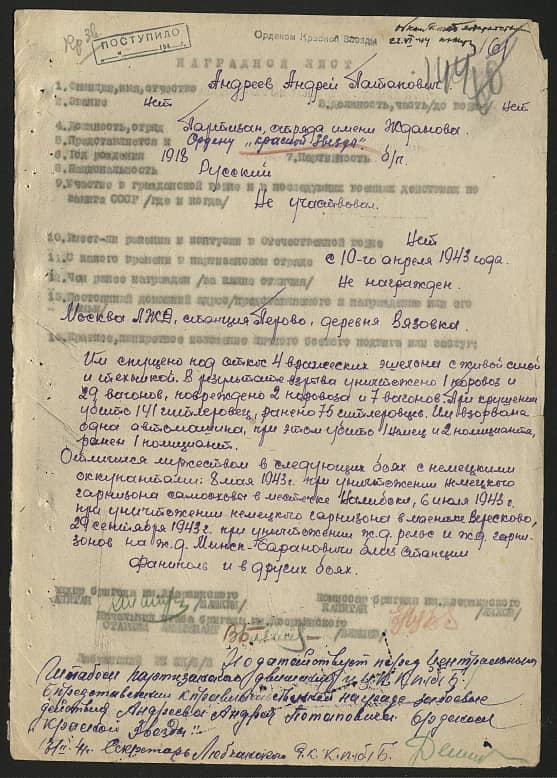 Орденом Красной Звезды
ПОСТУПИЛО
НАГРАДНОЙ ЛИСТ
1. Фамилия, имя, отчество Андреев Андрей Потапович
2. Звание Нет 3. Должность, часть /до войны/ Нет
4. Должность, отряд Партизан, отряда имени Жданова.
5. Представляется к Ордену "Красной Звезда"
6. Год рождения 1918 7. Партийность б/п.
8. Национальность Русский
9. Участие в гражданской войне и в последующих боевых действиях по
защите СССР /где и когда/ Не участвовал.
10. Имеет-ли ранения и контузии в Отечественной войне Нет
11. С какого времени в партизанском отряде с 10-го апреля 1943 года.
12. Чем ранее награжден /за какие отличия/ Не награжден.
13. Постоянный домашний адрес/представляемого к награждению или его
Москва ЛЖД, станция Перово, деревня Вязовка.
Им спущено под откос 4 вражеских эшелона с живой силой
и техникой. В результате взрыва уничтожено 1 паровоз и
29 вагонов, повреждено 2 паровоза и 7 вагонов. При крушении
убито 141 гитлеровец, ранено 75 гитлеровцев. Им взорвана
одна автомашина, при этом убито 1 немец и 2 полицианта,
ранен 1 полициант.
Отличился мужеством в следующих боях с немецкими
оккупантами: 8 мая 1943 г. при уничтожении немецкого
гарнизона самооховы в местечке Налибоки, 6 июля 1943 г.
при уничтожении немецкого гарнизона в имении Вересково,
29 сентября 1943 г. при уничтожении ж.д. рельс и ж.д. гарни-
зонов на ж.д. Минск-Барановичи близ станции
Фаниполь и в других боях.
КАПИТАН Комиссар бригады им. Дзержинского
КАПИТАН
Ходатайствует перед Центральным
штабом партизанского движения и ЦК КП(б)Б
о представлении к правительственной награде за боевые
действия Андреева Андрея Потаповича орденом
"Красной Звезды".
Секретарь Любчанского РК КП(б)Б